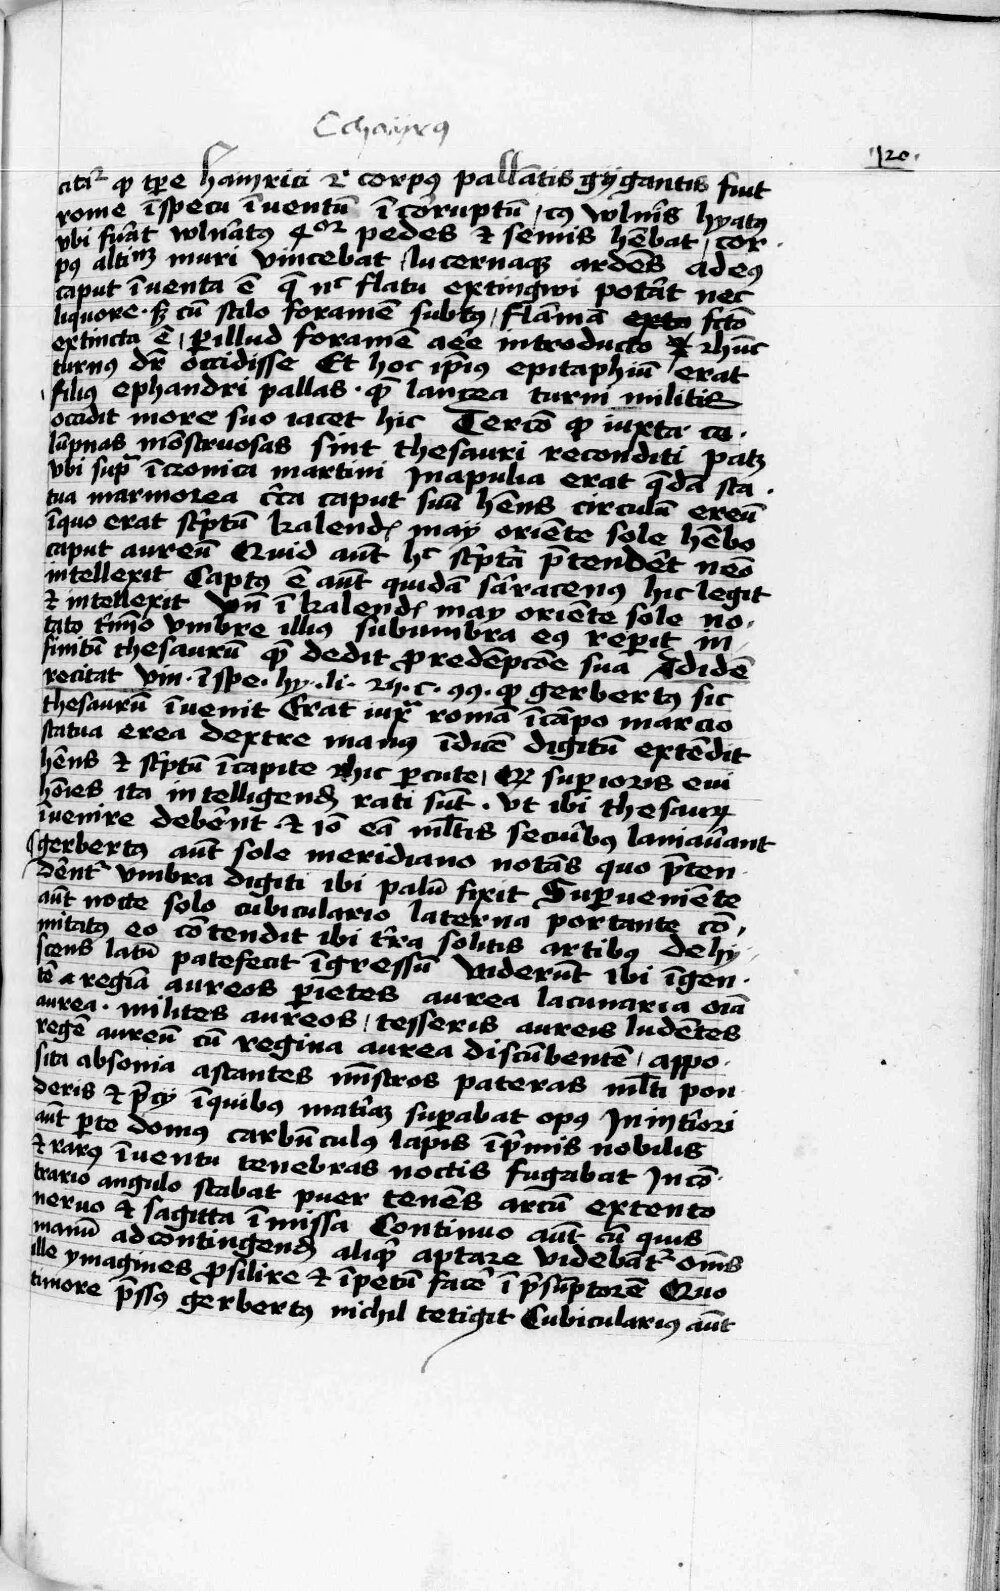 ·120·
citur ꝙ tpe hainrici 2i corpꝰ pallantis gygantis fuit
rome ī specu īuentū īcorruptū / cꝰ wlnīs hyatꝰ
vbi fuāt wlnātꝰ 4or pedes et semis hēbat / cor
pꝰ altinē muri vincebat / lucernaqꝫ ardēs ad eꝰ
caput īuenta ē q̄ nc flatu extingwi potāt nec
liquore · sꝫ cū stilo foramē subtꝰ / flāmā fctō
extincta ē / p illud foramē aere introducto hūc
turnꝰ dr̄ occidisse Et hoc ipiꝰ epitaphiū erat
filiꝰ ephandri pallas · quē lancea turni militis
occidit more suo iacet hic Tercō ꝙ iuxta co·
lūpnas mōstruosas sint thesauri reconditi patꝫ
vbi supra ī cronica martini In apulia erat q̄dā sta·
tua marmorea circa caput suū hēns circulū ereū
īquo erat scriptū kalend. may oriēte sole hēbo
caput aureū Quid aūt hc scriptā p̄tendēt nēo
intellexit Captꝰ ē aūt quidā sarracenꝰ hic legit
et intellexit Vn̄ ī kalend. may oriēte sole no·
tato t̄mīo vmbre illiꝰ sub umbra eꝰ reperit in
finitū thesaurū quē dedit pro redēpcōe sua Adidē
recitat vin· ī spe· hy· li· 24· c· 99· ꝙ gerbertꝰ sic
thesaurū īuenit Erat iuxͣ romā ī cāpo marcio
statua erea dextre manꝰ īdicē digitū extēdit
hēns et scriptū ī capite hic percute / Qꝫ superioris eui
hōies ita intelligend rati sūt · vt ibi thesaurꝫ
īuenire debēnt · et iō eā mltis secūbꝰ laniauāant
gerbertꝰ aūt sole meridiano notās quo pten·
dēntr vmbra digiti ibi palū fixit Superueniēte
aūt nocte solo cubiculario laterna portante cō·
mitatꝰ eo cōtendit ibi t̄ra solitis artibꝰ dehy·
scens latū patefecit īgressū viderūt ibi īgen·
tē regiā aureos parietes aurea lacunaria oīa
aurea · milites aureos / tesseris aureis ludētes
regē aureū cū regina aurea discūbentē / appo·
sita absonia astantes mīstros pateras mlti pon
deris et p̄cij ī quibꝰ matīaꝫ superabat opꝰ In intīori
aūt parte domꝰ carbūculꝰ lapis īprimis nobilis
et rarꝰ īuentu tenebras noctis fugabat In cō·
trario angulo stabat puer tenēs arcū extento
neruo et sagitta īmissa Continuo aūt cū quis
manū ad contingend aliquā aptare videbātr oms
ille ymagines prosilire et īpetū facē ī p̄sūptorē Quo
timore p̄ssꝰ gerbertꝰ nichil tetigit Cubiculariꝰ aūt